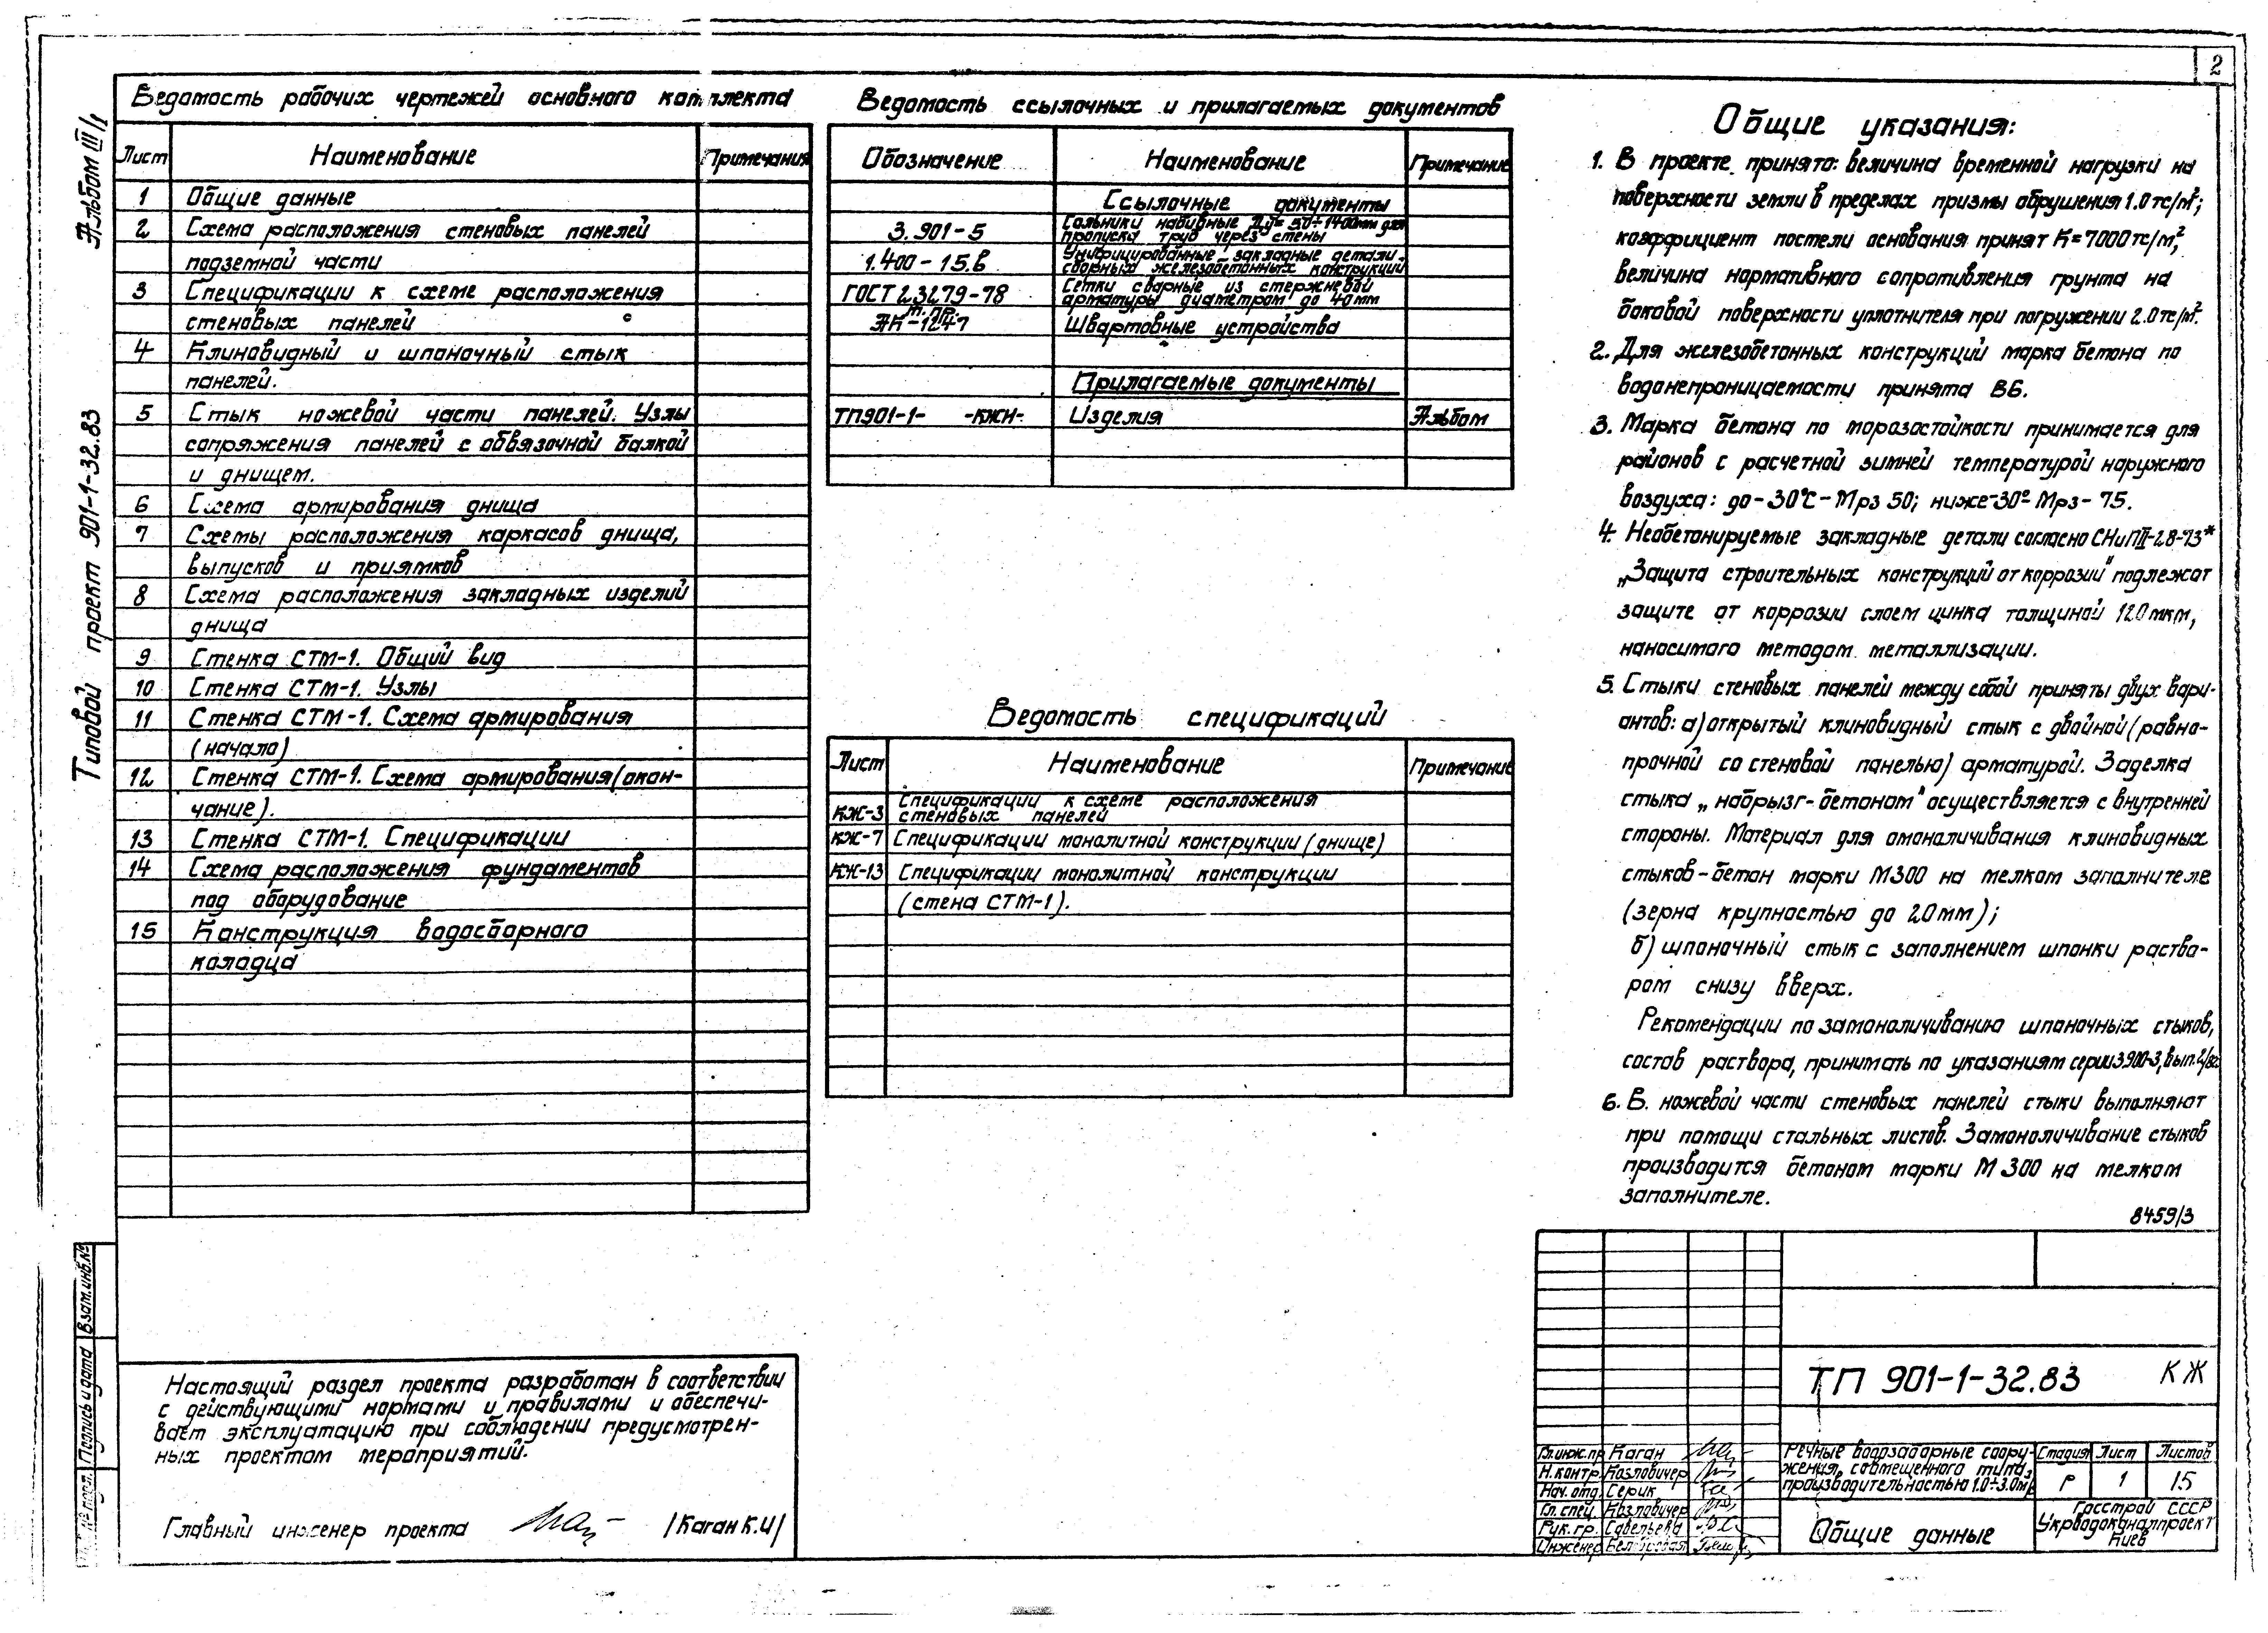 2
Альбом III/1
Типовой проект 901-1-32.83
Ведомость рабочих чертежей основного комплекта
Лист Наименование Примечания
1 Общие данные
2 Схема расположения стеновых панелей
подземной части
3 Спецификации к схеме расположения
стеновых панелей
4 Клиновидный и шпоночный стык
панелей.
5 Стык ножевой части панелей. Узлы
сопряжения панелей с обвязочной балкой
и днищем.
6 Схема армирования днища
7 Схемы расположения каркасов днища,
выпусков и приямков
8 Схема расположения закладных изделий
днища
9 Стенка СТМ-1. Общий вид
10 Стенка СТМ-1. Узлы
11 Стенка СТМ-1. Схема армирования
(начало)
12 Стенка СТМ-1. Схема армирования (окон-
чание).
13 Стенка СТМ-1. Спецификации
14 Схема расположения фундаментов
под оборудование
15 Конструкция водосборного
колодца
Ведомость ссылочных и прилагаемых документов
Обозначение Наименование Примечание
Ссылочные документы
3.901-5 Сальники набивные Ду=50÷1400мм для
пропуска труб через стены
1.400-15.в Унифицированные закладные детали
сборных железобетонных конструкций
ГОСТ 23279-78 Сетки сварные из стержневой
арматуры диаметром до 40мм
АК-1247 Швартовные устройства
Прилагаемые документы
ТП901-1- -КЖИ- Изделия Альбом
Ведомость спецификаций
Лист Наименование Примечание
КЖ-3 Спецификации к схеме расположения
стеновых панелей
КЖ-7 Спецификации монолитной конструкции (днище)
КЖ-13 Спецификации монолитной конструкции
(стена СТМ-1).
Общие указания:
1. В проекте принято: величина временной нагрузки на
поверхности земли в пределах призмы обрушения 1.0тс/м²;
коэффициент постели основания принят К=7000тс/м²,
величина нормативного сопротивления грунта на
боковой поверхности уплотнителя при погружении 2.0тс/м².
2. Для железобетонных конструкций марка бетона по
водонепроницаемости принята В6.
3. Марка бетона по морозостойкости принимается для
районов с расчетной зимней температурой наружного
воздуха: до -30°С - Мрз 50; ниже -30° Мрз - 75.
4. Необетонируемые закладные детали согласно СНиП III-28-73*
„Защита строительных конструкций от коррозии" подлежат
защите от коррозии слоем цинка толщиной 120мкм,
наносимого методом металлизации.
5. Стыки стеновых панелей между собой приняты двух вари-
антов: а) открытый клиновидный стык с двойной (равно-
прочной со стеновой панелью) арматурой. Заделка
стыка „набрызг-бетоном" осуществляется с внутренней
стороны. Материал для омоноличивания клиновидных
стыков - бетон марки М300 на мелком заполнителе
(зерна крупностью до 20мм);
б) шпоночный стык с заполнением шпонки раство-
ром снизу вверх.
Рекомендации по замоноличиванию шпоночных стыков,
состав раствора, принимать по указаниям серии 3.900-3, вып.2/82
6. В ножевой части стеновых панелей стыки выполняют
при помощи стальных листов. Замоноличивание стыков
производится бетоном марки М300 на мелком
заполнителе.
8459/3
Настоящий раздел проекта разработан в соответствии
с действующими нормами и правилами и обеспечи-
вает эксплуатацию при соблюдении предусмотрен-
ных проектом мероприятий.
Главный инженер проекта /Каган К.И/
Взам.инв.№
Подпись и дата
ТП 901-1-32.83 КЖ
Гл.инж.пр Каган
Н.контр. Козловичер
Нач.отд. Серик
Гл.спец. Козловичер
Рук.гр. Савельева
Инженер
Речные водозаборные соору-
жения совмещенного типа,
производительностью 1.0÷3.0м³/
Стадия Лист Листов
Р 1 15
Общие данные
Госстрой СССР
Укрводоканалпроект
Киев